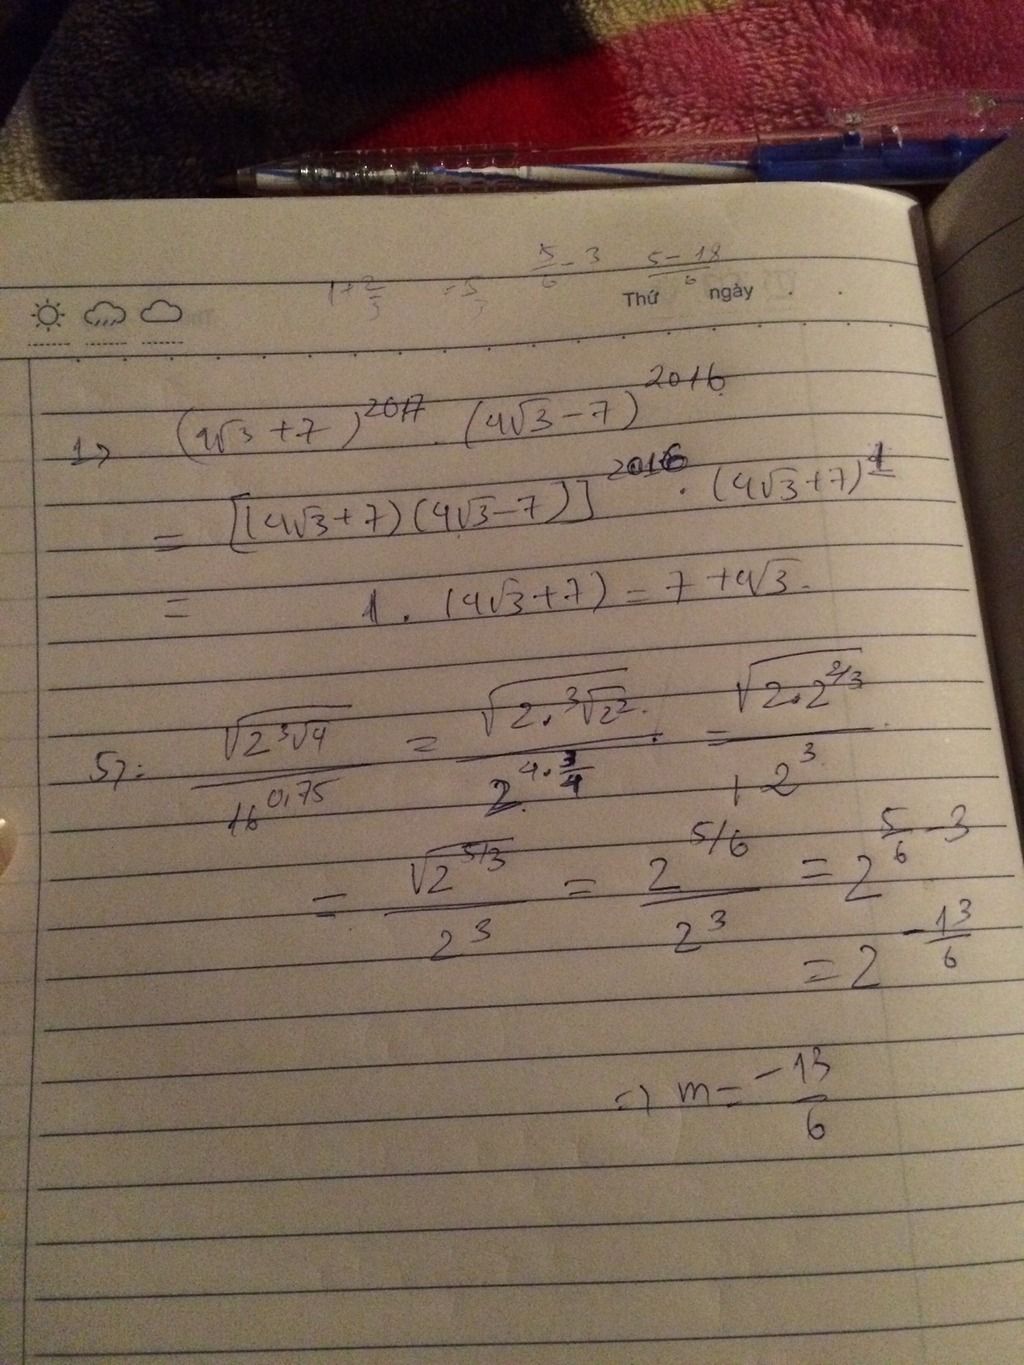 1+2/3 = 5/3 5/6 - 3 5-18/6
Thứ ngày
1> (4√3+7)^2017 . (4√3-7)^2016
= [(4√3+7)(4√3-7)]^2016 . (4√3+7)^1
= 1 . (4√3+7) = 7+4√3.
5>: √(2 ³√4) / 16^0,75 = √(2.³√2²) / 2^(4.3/4) = √(2.2^2/3) / 2^3
= √(2^5/3) / 2^3 = 2^5/6 / 2^3 = 2^(5/6 - 3)
= 2^(-13/6)
=> m = -13/6